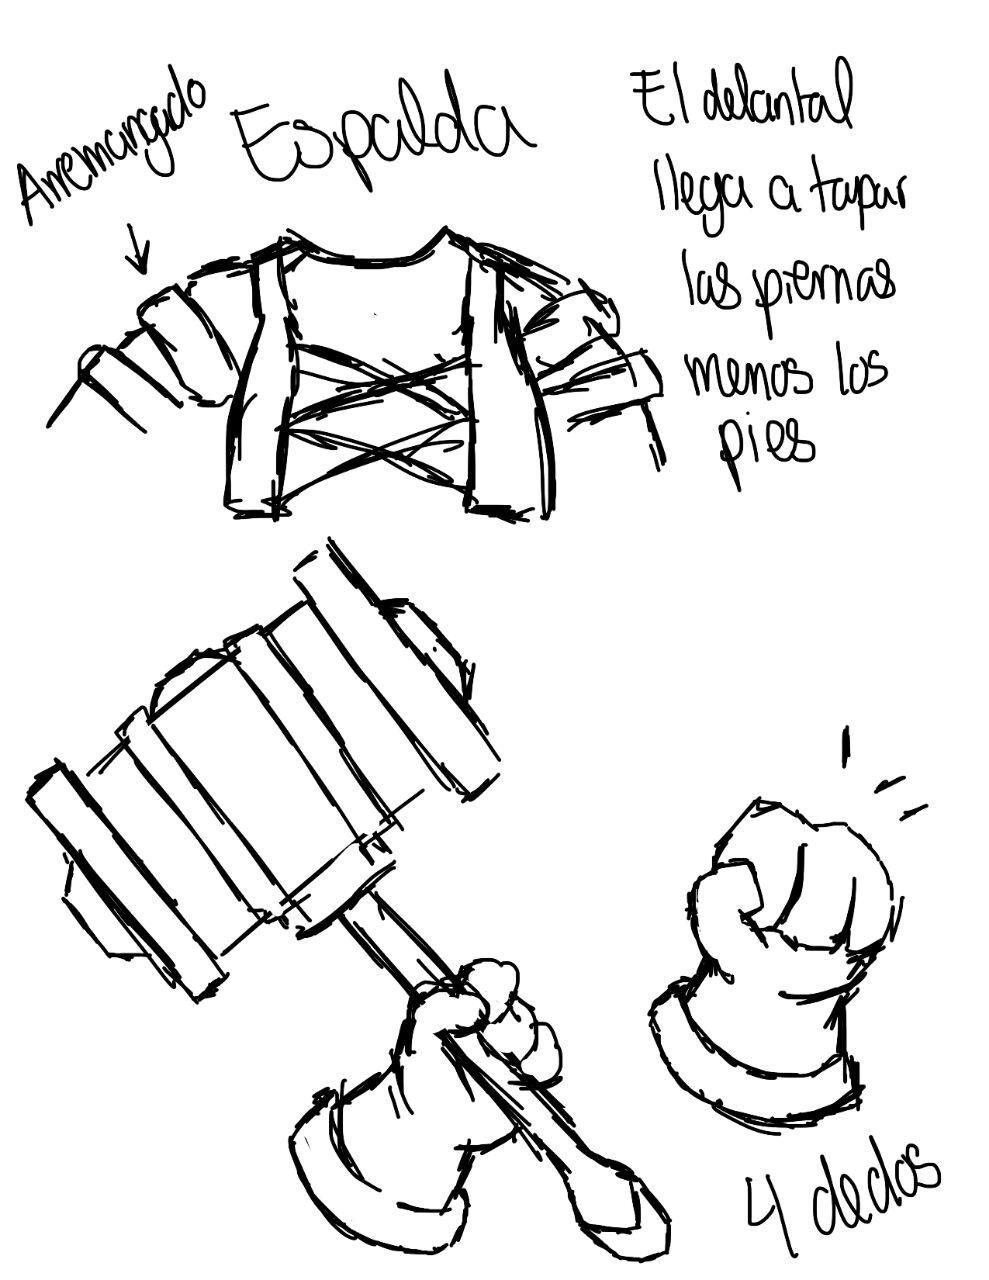 Arremangado
Espalda
El delantal
llega a tapar
las piernas
menos los
pies
4 dedos